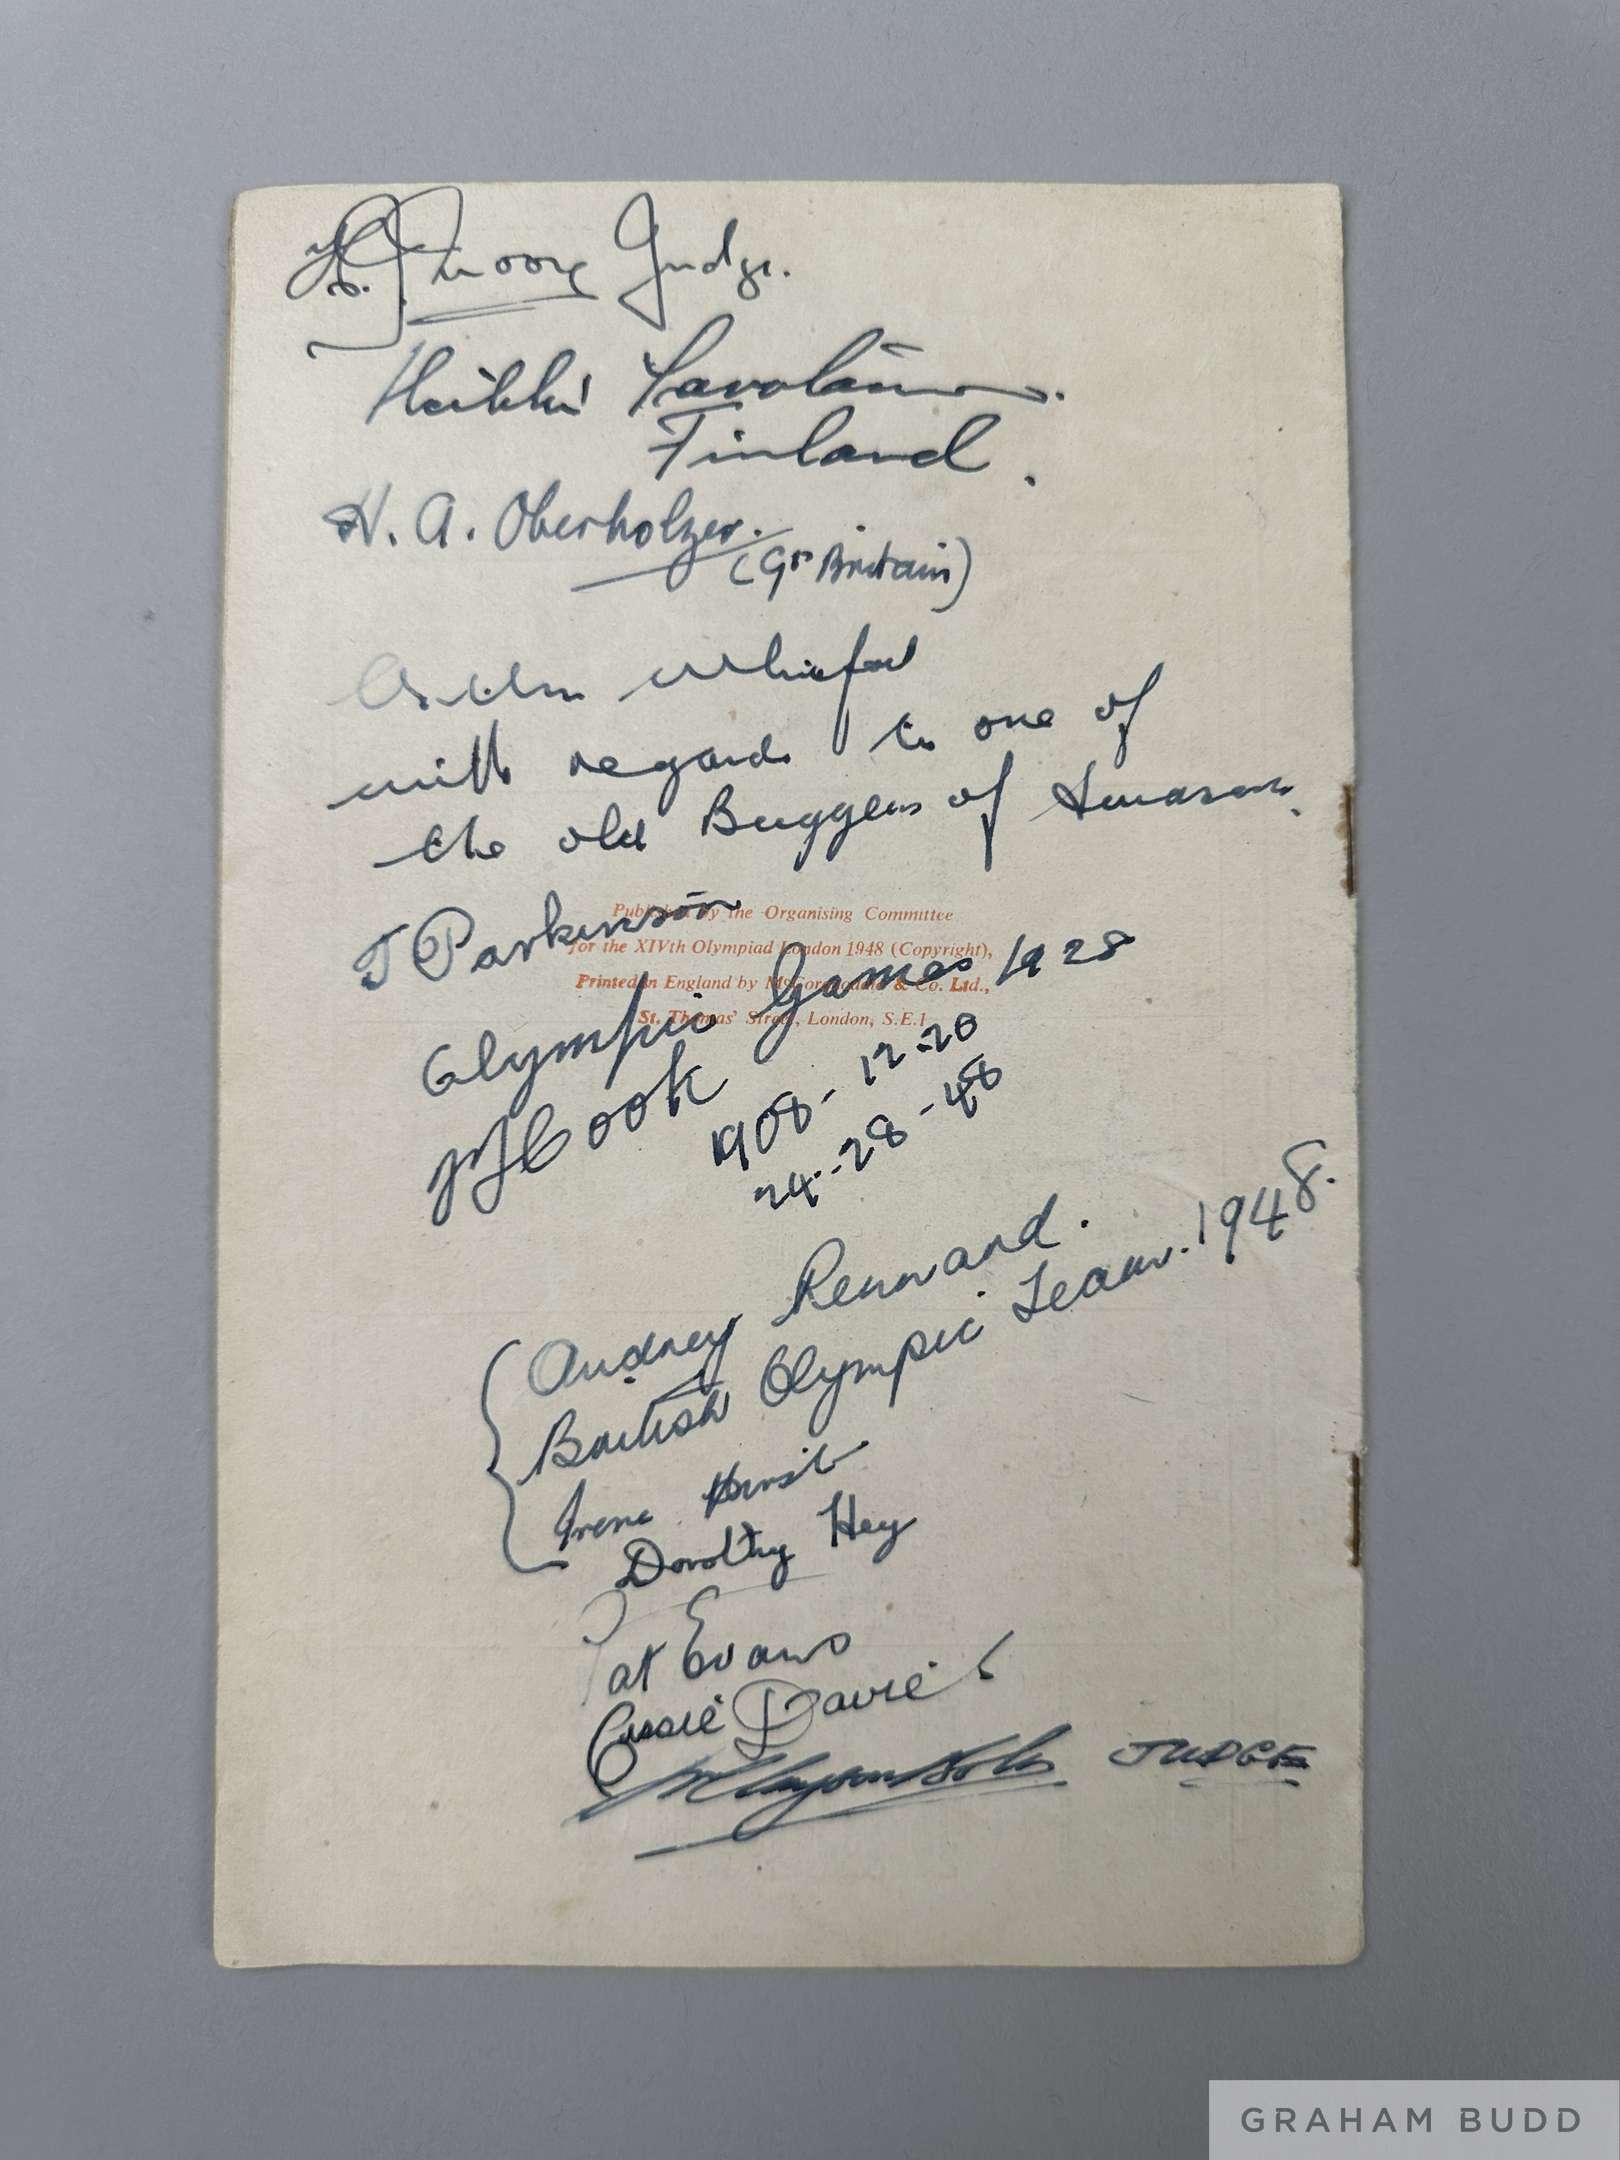 Judge.
Heikki Savolainen.
Finland.
H. A. Oberholzer.
(Gt Britain)
Arthur Whitford
with regards to one of
the old Buggers of Swansea.
J Parkinson
Published by the Organising Committee
for the XIVth Olympiad London 1948 (Copyright),
Printed in England by McCorquodale & Co. Ltd.,
St. Thomas' Street, London, S.E.1
Olympic Games 1928
Cook
1908 - 12 - 20
24 - 28 - 48
Audrey Rennard.
British Olympic Team. 1948.
Irene Hirst
Dorothy Hey
Pat Evans
Cissie Davies
JUDGE
GRAHAM BUDD